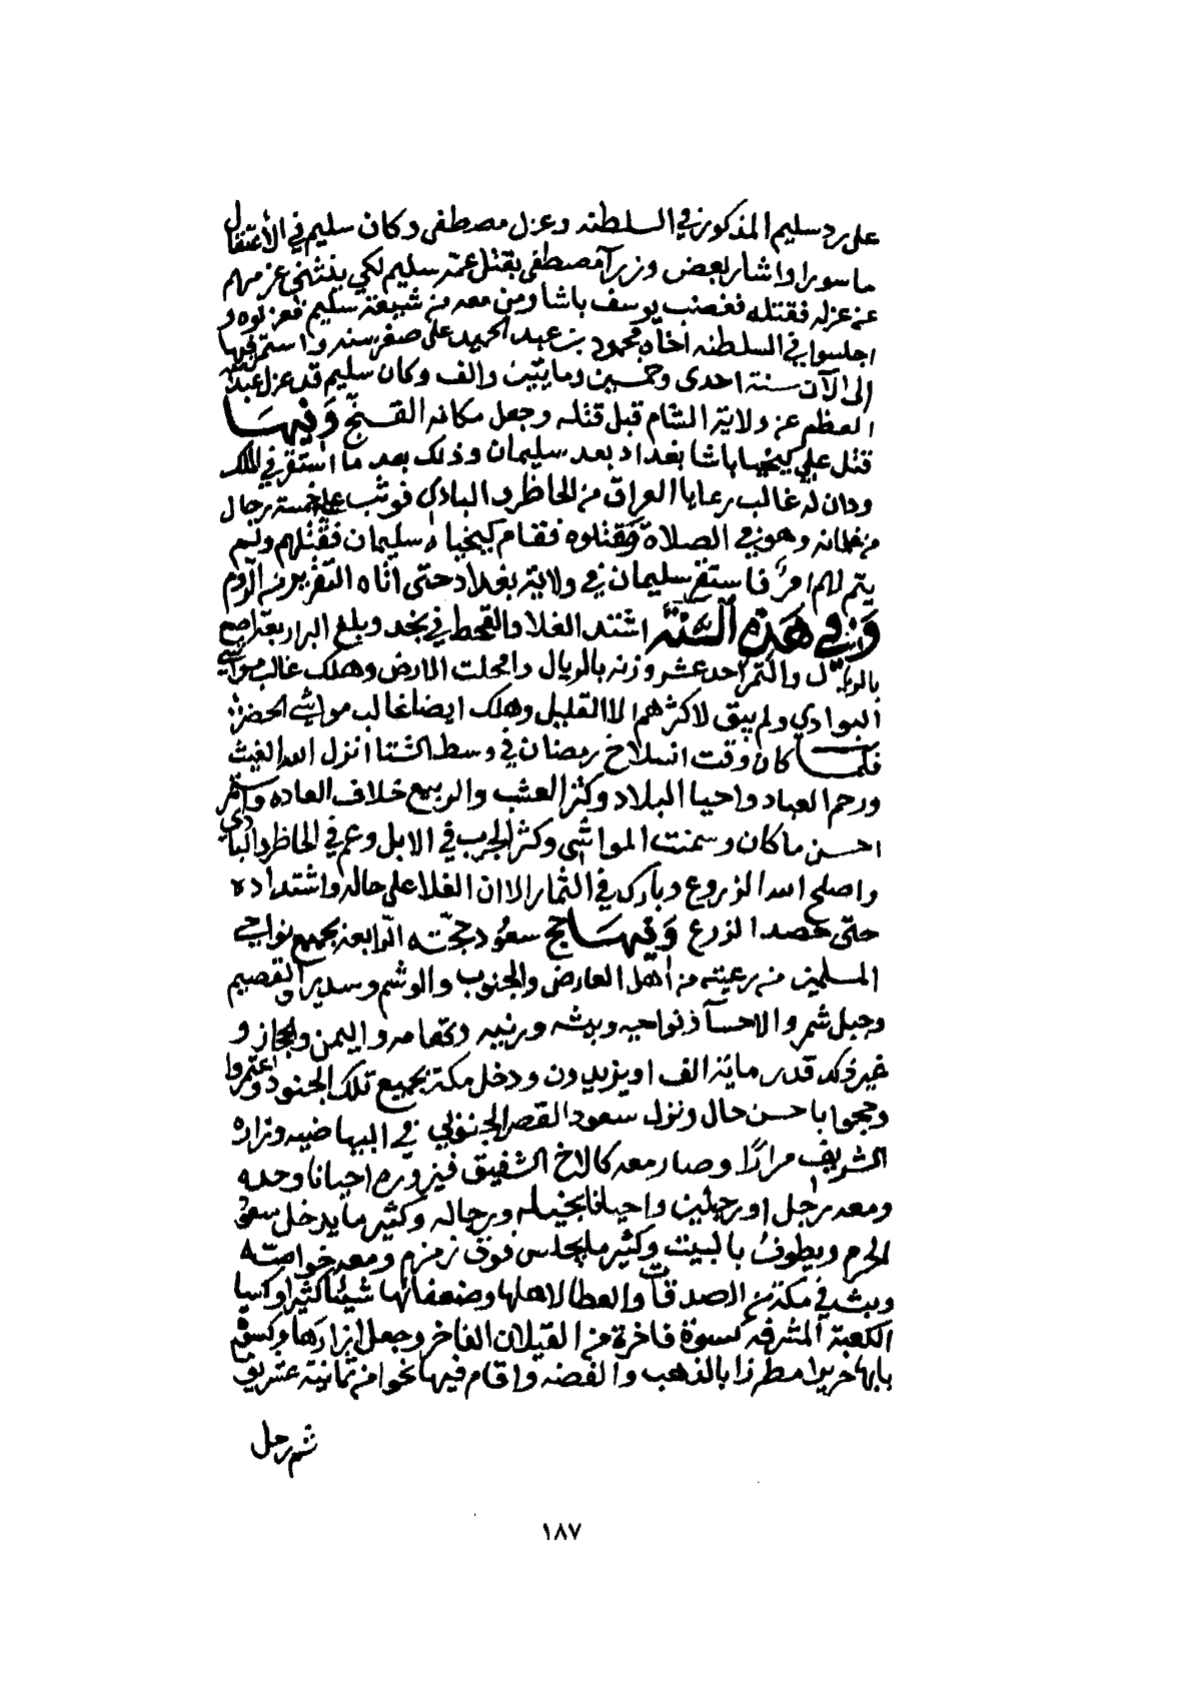 على رد سليم المذكور في السلطنه وعزل مصطفى وكان سليم في الأعتقال
ماسورا واشار بعض وزرآ مصطفى بقتل عمه سليم لكي ينثني عزمهم
عن عزله فقتله فغضب يوسف باشا ومن معه من شيعة سليم فعزلوه و
اجلسوا في السلطنه اخاه محمود بن عبد الحميد على صغر سنه واستمر فيها
الى الآن سنة احدى وخمسين ومايتين والف وكان سليم قد عزل عبدالله
العظم عن ولاية الشام قبل قتله وجعل مكانه القنج وَفيهَا
قتل علي كيخيا باشا بغداد بعد سليمان وذلك بعد ما استقر في الملك
ودان له غالب رعايا العراق من الحاظر والبادي فوثب عليه خمسة رجال
من غلمانه وهو في الصلاة فقتلوه فقام كيخياه سليمان فقتلهم ولم
يتم لهم امرٌ فاستقر سليمان في ولاية بغداد حتى اتاه التقرير من الروم
وَفي هَذه السَّنَة اشتد الغلا والقحط في نجد وبلغ البر اربعة اصع
بالريال والتمر احد عشر وزنه بالريال وامحلت الارض وهلك غالب مواشي
البوادي ولم يبق لاكثرهم الا القليل وهلك ايضا غالب مواشي الحضر
فلما كان وقت انسلاخ رمضان في وسط الشتا انزل الله الغيث
ورحم العباد واحيا البلاد وكثر العشب والربيع خلاف العاده واستمر
احسن ما كان وسمنت المواشي وكثر الجرب في الابل وعم في الحاظر والبادي
واصلح الله الزروع وبارك في الثمار الا ان الغلا على حاله واشتداده
حتى حصد الزرع وَفيهَا حج سعود حجته الرابعة بجميع نواحي
المسلمين من رعيته من اهل العارض والجنوب والوشم وسدير والقصيم
وجبل شمر والاحسآ ونواحيه وبيشه ورنيه وتهامه واليمن والحجاز و
غير ذلك قدر ماية الف او يزيدون ودخل مكة بجميع تلك الجنود واعتمروا
وحجوا باحسن حال ونزل سعود القصر الجنوبي في البياضيه وزاره
الشريف مرارًا وصار معه كالاخ الشفيق فيزوره احيانا وحده
ومعه رجل او رجلين واحيانا بخيله ورجاله وكثير ما يدخل سعود
الحرم ويطوف بالبيت وكثير ما يجلس فوق زمزم ومعه خواصته
وبث في مكة من الصدقات والعطا لاهلها وضعفائها شيئا كثيرا وكسا
الكعبة المشرفه كسوة فاخرة من القيلان الفاخر وجعل ازارها وكسوة
بابها حريرا مطرزا بالذهب والفضه واقام فيها نحوا من ثمانية عشر يوم
ثم رحل
١٨٧